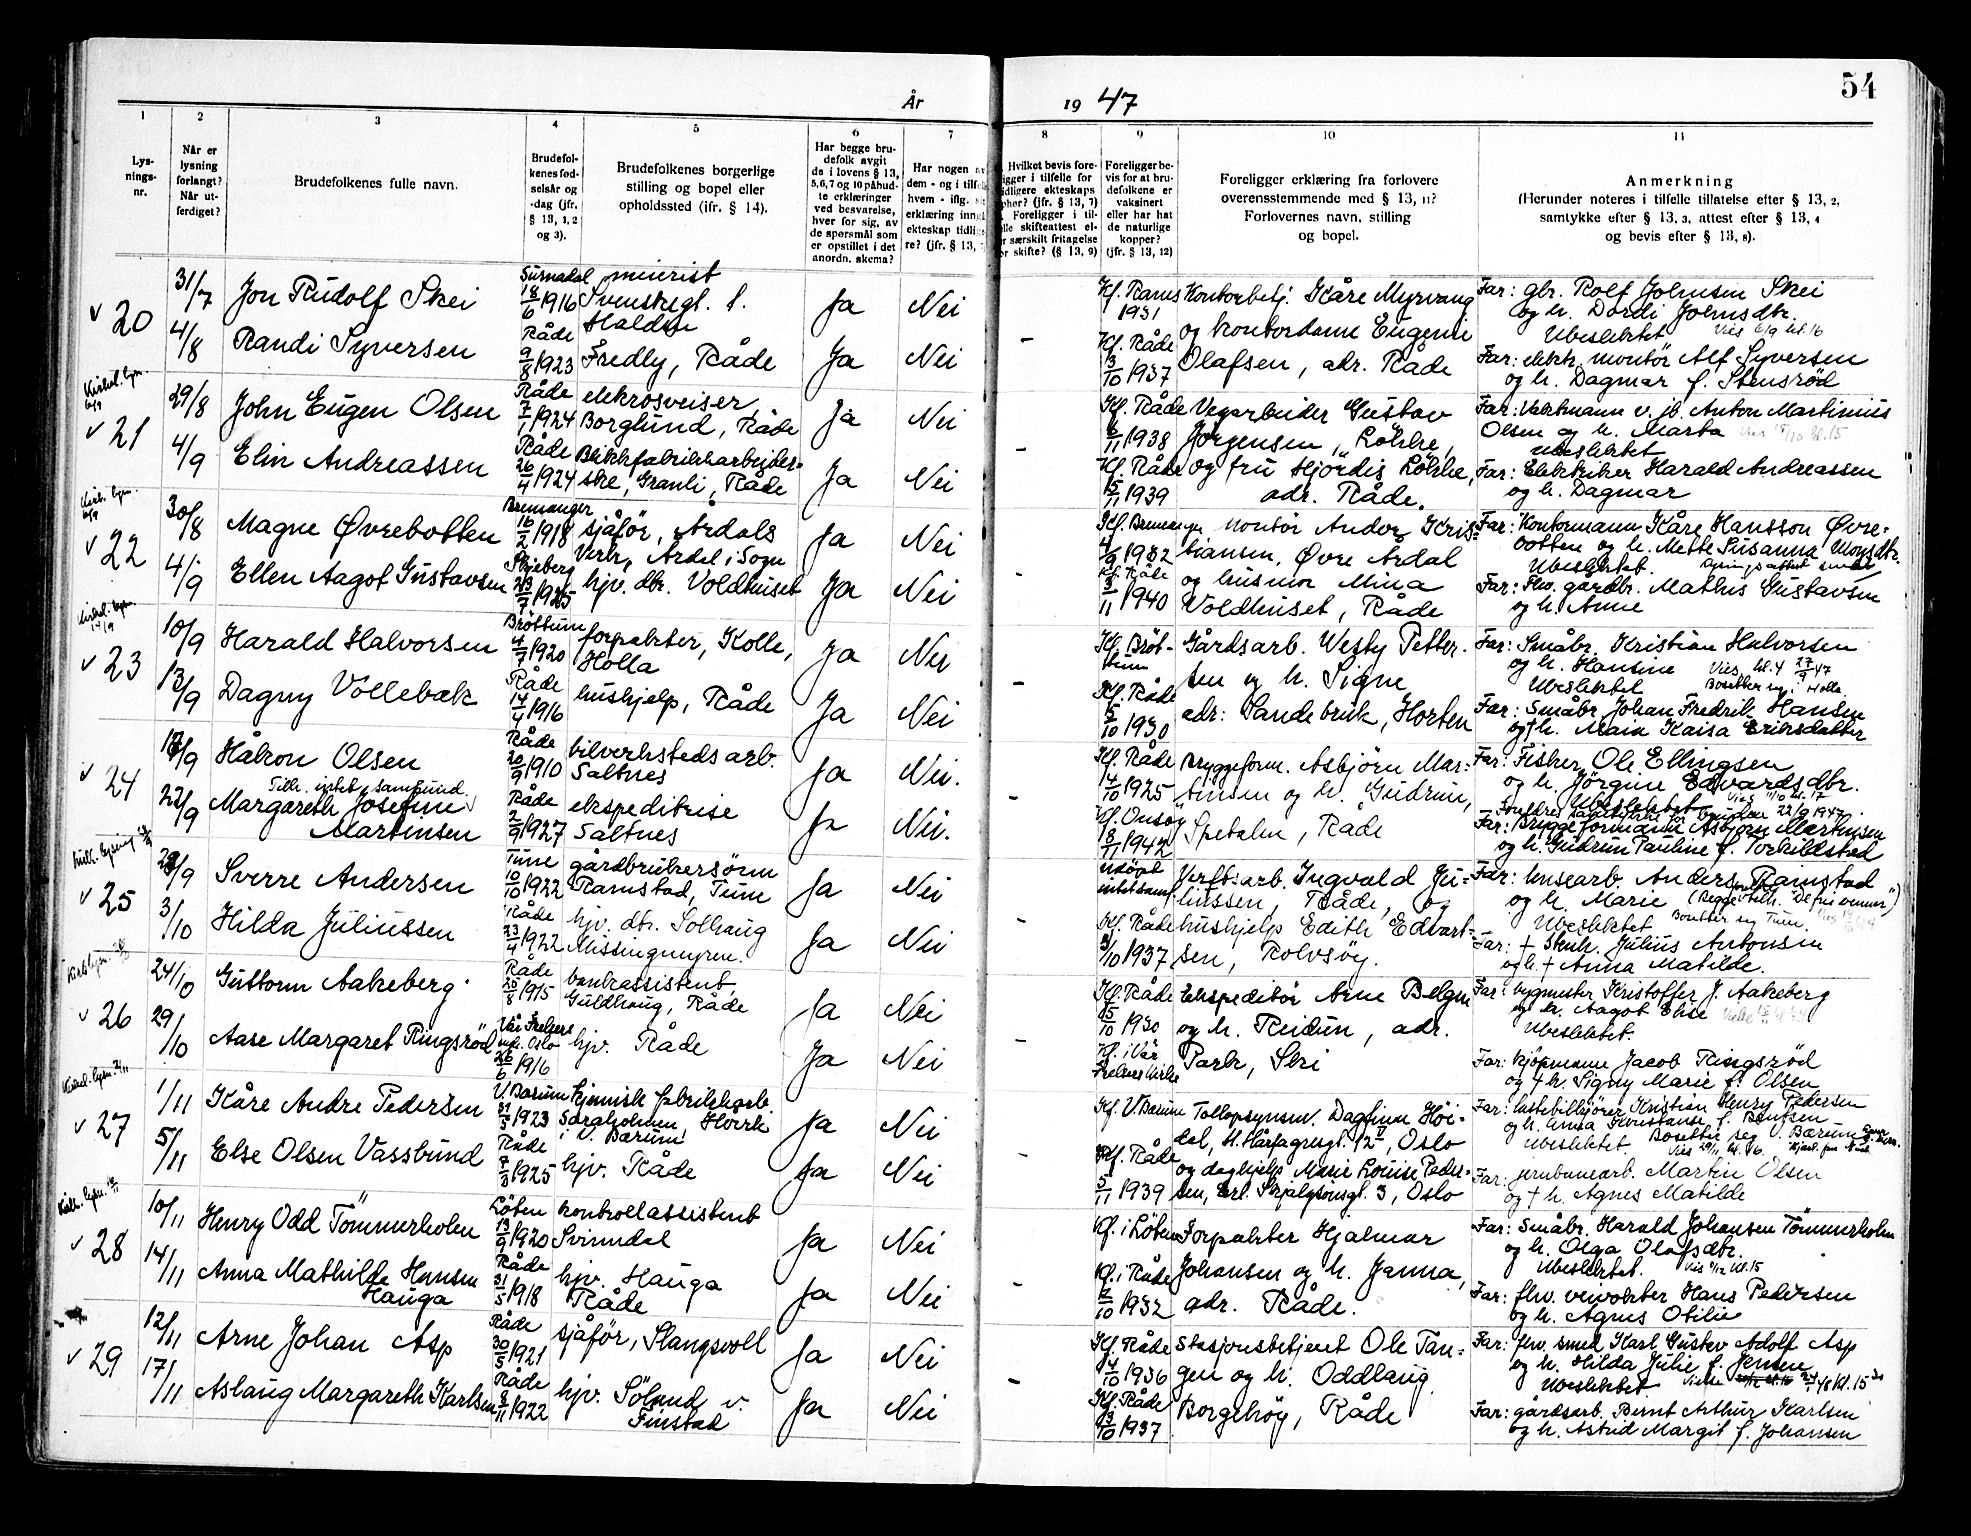 54
År 19 47
1 2 3 4 5 6 7 8 9 10 11
Lys-
nings-
nr.
Når er
lysning
forlangt?
Når ut-
ferdiget?
Brudefolkenes fulle navn.
Brudefol-
kenes fød-
selsår og
-dag (jfr.
§ 13, 1, 2
og 3).
Brudefolkenes borgerlige
stilling og bopel eller
opholdssted (ifr. § 14).
Har begge bru-
defolk avgit
de i lovens § 13,
5, 6, 7 og 10 påbud-
te erklæringer
ved besvarelse,
hver for sig, av
de spørsmål som
er opstillet i det
anordn. skema?
Har nogen av
dem - og i tilfelle
hvem - iflg.
erklæring inng
ekteskap tidlig
re? (jfr. § 13,
Hvilket bevis fore-
igger i tilfelle for
idligere ekteskaps
phør? (jfr. § 13, 7)
Foreligger i til-
elle skifteattest el-
er særskilt fritagelse
or skifte? (§ 13, 9)
Foreligger be-
vis for at bru-
defolkene er
vaksinert
eller har hat
de naturlige
kopper?
(jfr. § 13, 12)
Foreligger erklæring fra forlovere
overensstemmende med § 13, 11?
Forlovernes navn, stilling
og bopel.
Anmerkning
(Herunder noteres i tilfelle tillatelse efter § 13, 2,
samtykke efter § 13, 3, attest efter § 13, 4
og bevis efter § 13, 8).
20
31/7 Jon Rudolf Skei
Surnadal 18/6 1916
meierist
Svenskegt. 1.
Halden
Ja Nei
Kf. 1931
Kontorbetj. Kåre Myrvang
Far: gbr. Rolf Johnsen Skei
og h. Dordi Johnsdtr.
Ubeslektet Vies 6/9 kl. 16
4/8 Randi Syversen
Råde 9/8 1923
Fredly, Råde
Ja Nei
Kf. Råde 3/10 1937
og kontordame Eugenie
Olafsen, adr. Råde
Far: elektr. montör Alf Syversen
og h. Dagmar f. Stensröd
21
29/8 John Eugen Olsen
Råde 7/1 1924
elektrosveiser,
Borglund, Råde
Ja Nei
Kf. Råde 6/11 1938
Vegarbeider Gustav
Jörgensen, Lökke,
Far: Vaktmann v. jb. Anton Martinius
Olsen og h. Marta
Ubeslektet
4/9 Elin Andreassen
Råde 26/4 1924
Blikkfabrikkarbejder-
ske, Granli, Råde
Ja Nei
Kf. Råde 15/11 1939
og fru Hjördis Lökke,
adr. Råde.
Far: Elektriker Harald Andreassen
og h. Dagmar
22
30/8 Magne Øvrebotten
Bremanger 16/2 1918
sjåför, Årdals
Verk, Årdal i Sogn
Ja Nei
1932
montör Anders Kris-
tiansen, Øvre Årdal
Far: Kontormann Kåre Hansson Øvre-
botten og h. Mette Susanna Monsdtr.
Ubeslektet.
4/9 Ellen Aagot Gustavsen
Skjeberg 23/7 1925
hjv. dtr. Voldhuset
Ja Nei
Kf. Råde 3/11 1940
og husmor Mina
Voldhuset, Råde
Far: Fhv. gårdbr. Mathis Gustavsen
og h. Anne
23
10/9 Harald Halvorsen
Bröttum 4/7 1920
forpakter, Kolle,
Holla
Ja Nei
Kf. Bröt-
tum
Gårdsarb. Westy Petter-
sen og h. Signe
Far: Småbr. Kristian Halvorsen
og h. Hansine Vies kl. 4 27/9 47
Ubeslektet Bosetter seg i Holla.
13/9 Dagny Vollebæk
Råde 14/4 1916
hushjelp, Råde
Ja Nei
Kf. Råde 5/10 1930
adr: Sandebruk, Horten
Far: Småbr. Johan Fredrik Hansen
og † h. Maia Kaisa Eriksdatter
24
Håkon Olsen
Råde 20/9 1910
bilverksteds arb.
Saltnes
Ja Nei.
Kf. Råde 4/10 1925
Bryggeform. Asbjörn Mar-
tinsen og h. Gudrun,
Far: Fisker Ole Ellingsen
og h. Jörgine Edvardsdtr.
Ubeslektet
Tilh. intet samfund.
22/9 Margareth Josefine
Martinsen
Råde 2/9 1927
ekspeditrise
Saltnes
Ja Nei.
Kf. Onsöy 8/11 1942
Spetalen, Råde
Far: Bryggeformann Asbjörn Martinsen
og h. Gudrun Pauline f. Torkildstad
25
Sverre Andersen
Tune 10/10 1922
gårdbrukersönn
Ramstad, Tune
Ja Nei
Verftsarb. Ingvald Ju-
liussen, Råde, og
Far: Unsearb. Anders Ramstad
og h. Marie
Ubeslektet Bosetter seg Tune.
3/10 Hilda Juliussen
Råde 23/4 1922
hjv. dtr. Solhaug
Missingmyren.
Ja Nei
Kf. Råde 3/10 1937
hushjelp Edith Edvart-
sen, Rolvsöy.
Far: † Stenh. Julius Antonsen
og h. † Anna Matilde.
26
24/10 Guttorm Aakeberg
Råde 1915
bankassistent,
Guldhaug, Råde
Ja Nei
Kf. Råde 5/10 1930
Ekspeditör Arne Belgen
og h. Reidun, adr.
Far: bygmester Kristoffer J. Aakeberg
og h. Aagot Elise
Ubeslektet.
29/10 Aase Margaret Ringsröd
Vår Frelsers
Oslo
26/6 1916
hjv. Råde
Ja Nei
Kf. i Vår
Frelsers kirke
Park, Ski
Far: kjöpmann Jacob Ringsröd
og † h. Signy Marie f. Olsen
27
1/11 Kåre Andre Pedersen
V. Bærum 31/5 1923
kjemisk fabrikkarb.
Saraholmen, Hvervik
i V. Bærum
Ja Nei
Kf. V. Bærum
Tollopsynsm. Dagfinn Höi-
dal, H. Hårfagresgt. 12, Oslo
Far: lastebilkjörer Kristian Henry Pedersen
og h. Anna Konstanse f. Bentsen
Ubeslektet. Bosetter seg V. Bærum
5/11 Else Olsen Vassbund
Råde 7/3 1925
hjv. Råde
Ja Nei
Kf. Råde 5/11 1939
og daghjelp Marie Louise Peder-
sen, Erl. Skjalgsonsgt. 3, Oslo
Far: jernbanearb. Martin Olsen
og † h. Agnes Matilde
28
10/11 Henry Odd Tömmerholen
Löten 13/9 1920
kontrollassistent
Svinndal
Ja Nei
Kf. i Löten
Forpakter Hjalmar
Far: Småbr. Harald Johansen Tömmerholen
og h. Olga Olafsdtr.
Ubeslektet.
14/11 Anna Mathilde Hansen
Hauga
Råde 31/5 1918
hjv. Hauga
Råde
Ja Nei
Kf. i Råde 2/10 1932
Johansen og h. Janna,
adr. Råde.
Far: fhv. veivokter Hans Pedersen
og h. Agnes Otilie
29
12/11 Arne Johan Asp
Råde 30/5 1921
sjåför, Slangsvoll
Ja Nei
Kf. Råde 4/10 1936
Stasjonsbetjent Ole Tan-
gen og h. Oddlaug
Far: fhv. smed Karl Gustav Adolf Asp
og h. Hilda Julie f. Jensen
Ubeslektet
17/11 Aslaug Margareth Karlsen
Råde 8/11 1922
hjv. Sölund v.
Finstad
Ja Nei
Kf. Råde 13/10 1937
Borgehöy, Råde
Far: gårdsarb. Bernt Arthur Karlsen
og h. Astrid Margit f. Johansen